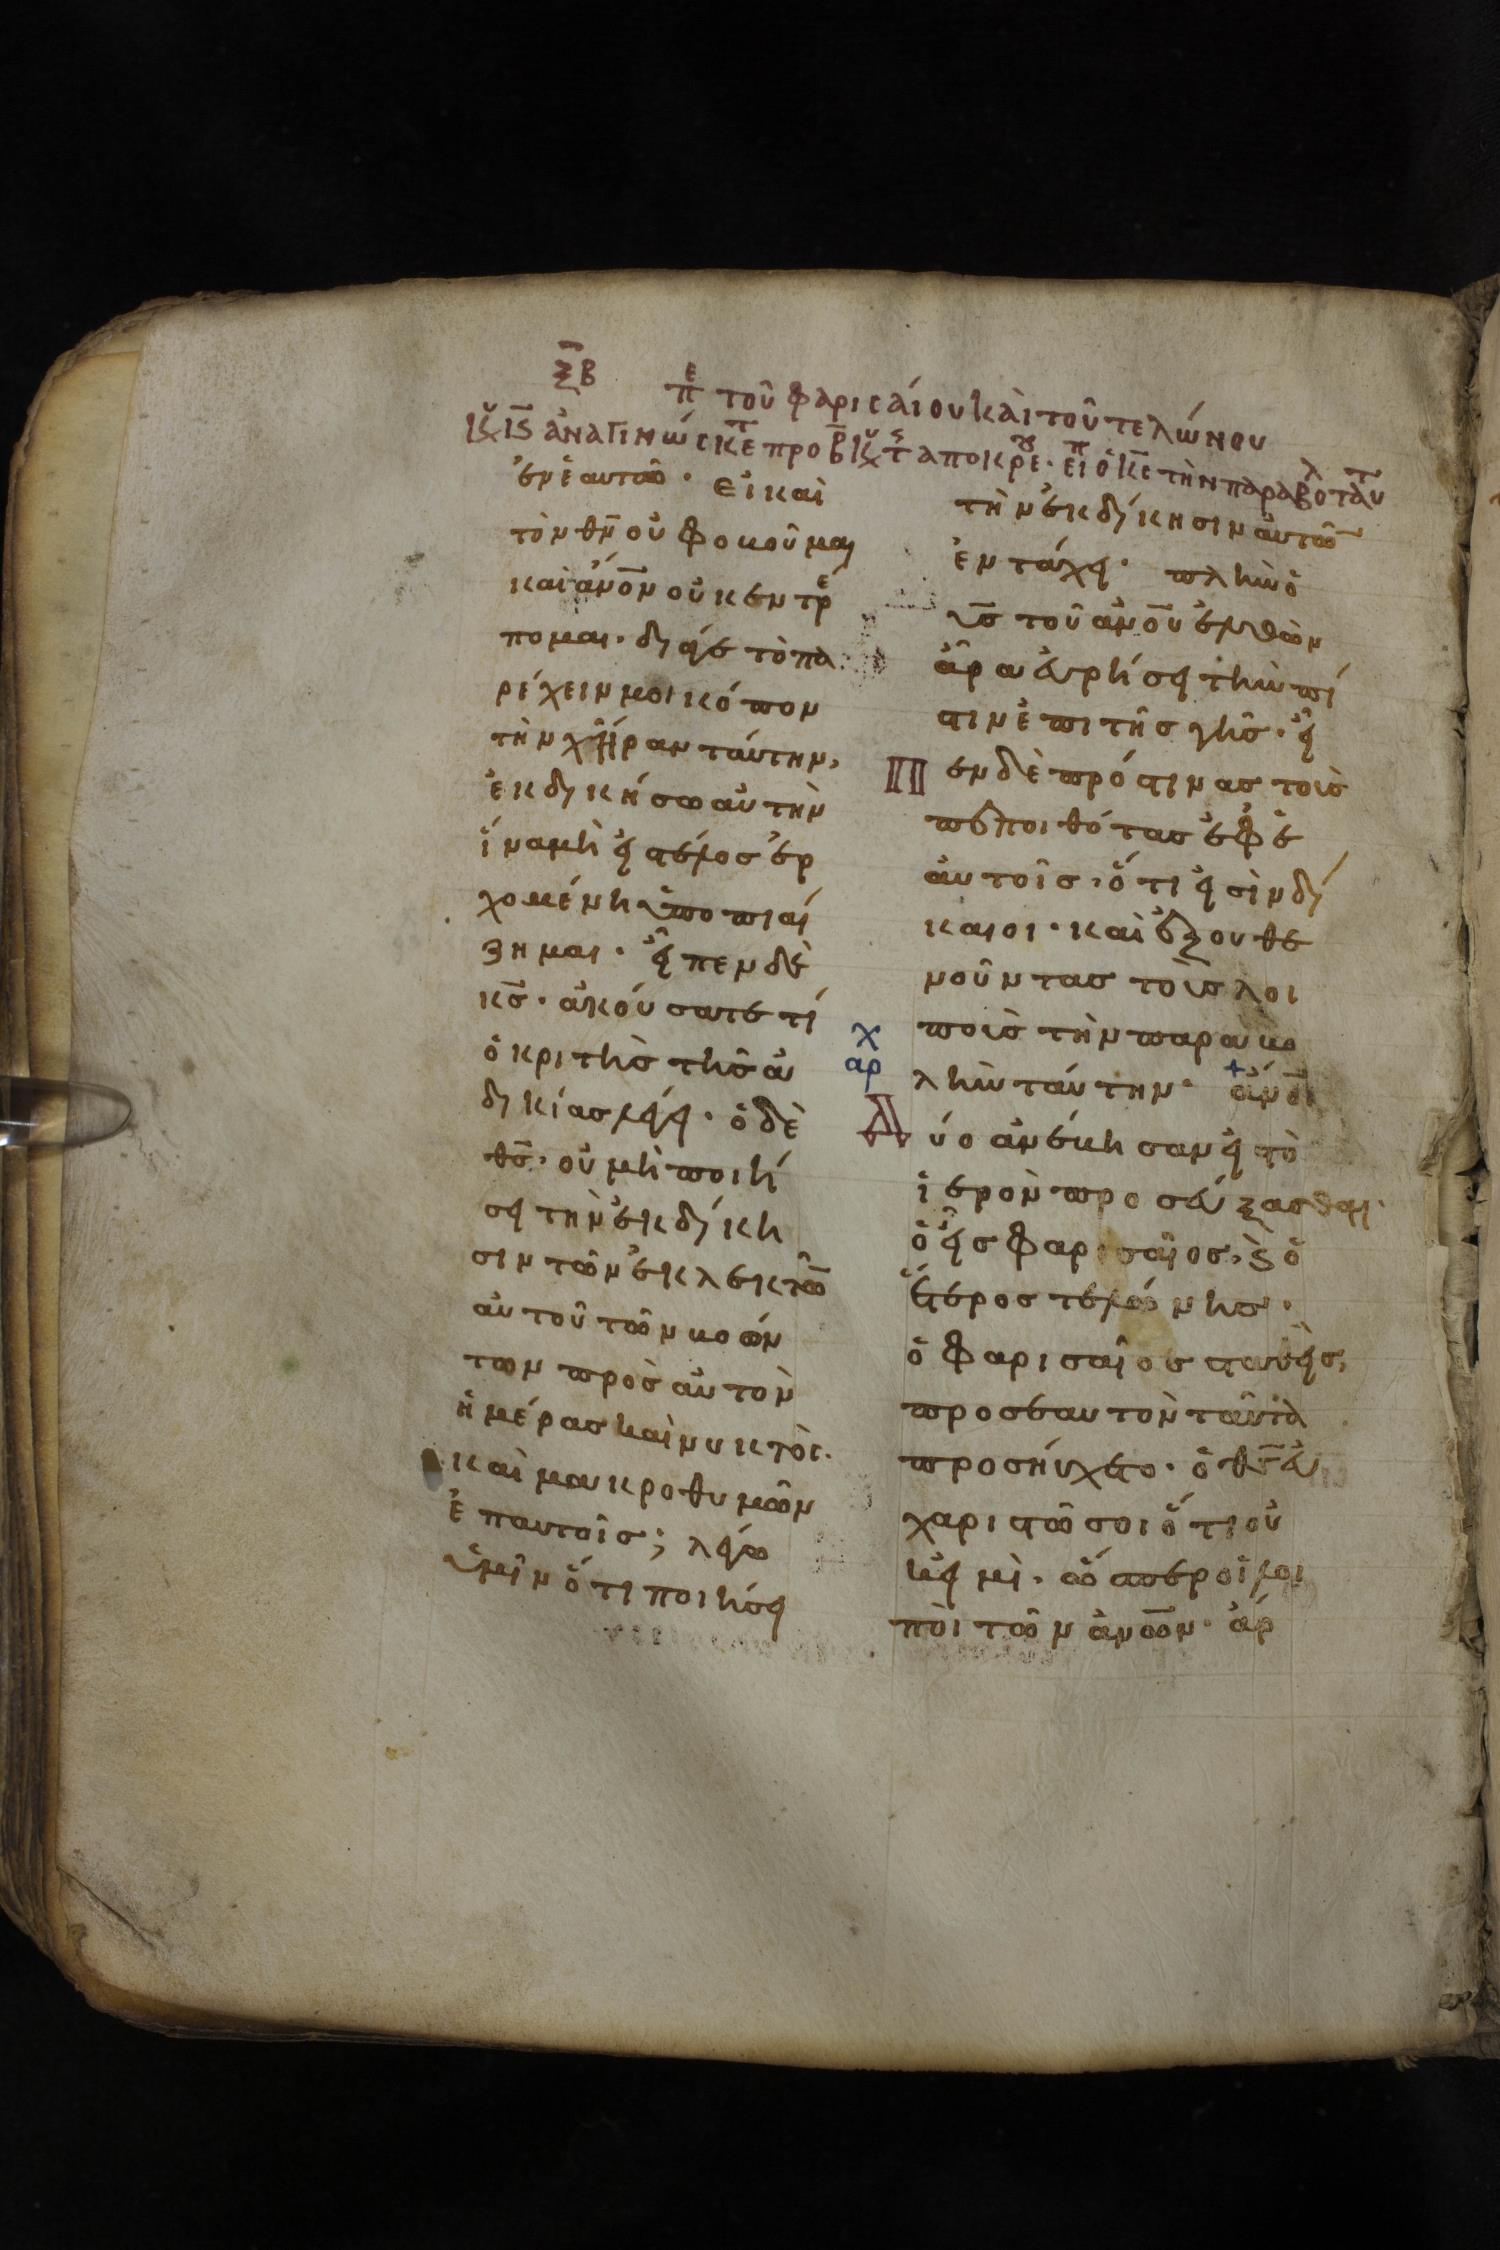 ξ̅β̅ πε τοῦ φαρισαίου καὶ τοῦ τελώνου
ἀναγινώσκετ προ β̅ ἀποκρε· εἶπ ὁ κ̅ς̅ τὴν παραβολ ταύτ
ἐν ἑαυτῶ· εἰ καὶ
τὸν θ̅ν̅ οὐ φοβοῦμαι
καὶ ἀν̅ο̅ν οὐκ ἐντρέ
πομαι· διάγε τὸ πα
ρέχειν μοι κόπον
τὴν χήραν ταύτην,
ἐκδικήσω αὐτὴν
ἵνα μὴ εἰς τέλος ἐρ
χομένη ὑποπιά
ζη μαι· εἶπεν δὲ
κ̅ς̅· ἀκούσατε τί
ὁ κριτὴς τῆς ἀ
δικίας λέγει· ὁ δὲ
θ̅ς̅· οὐ μὴ ποιή
σει τὴν ἐκδίκη
σιν τῶν ἐκλεκτῶ̅
αὐτοῦ τῶν βοών
των πρὸς αὐτὸν
ἡμέρας καὶ νυκτός·
καὶ μακροθυμῶν
ἐπ αυτοῖς; λέγω
ὑμῖν ὅτι ποιήσει
τὴν ἐκδίκησιν αὐτῶ̅
ἐν τάχει· πλὴν ὁ
υ̅ς̅ τοῦ ἀν̅ο̅υ ἐλθὼν
ἆρα εὑρήσει τὴν πί
στιν ἐπὶ τῆς γῆς· εἶ
πεν δὲ πρός τινας τοὺς
πεποιθότας ἐφ ἑ
αυτοῖς· ὅτι εἰσὶν δί
καιοι· καὶ ἐξουθε
νοῦντας τοὺς λοι
ποὺς τὴν παραβο
λὴν ταύτην· ἀν̅ο̅ι
χ
αρ
δύο ἀνέβησαν εἰς τὸ
ἱερὸν προσεύξασθαι·
ὁ εἷς φαρισαῖος, καὶ ὁ
ἕτερος τελώνης·
ὁ φαρισαῖος σταθεὶς,
πρὸς ἑαυτὸν ταῦτα
προσηύχετο· ὁ θ̅ς̅ εὐ
χαριστῶ σοι ὅτι οὐ
κ εἰμὶ· ὥσπερ οἱ λοι
ποὶ τῶν ἀν̅ω̅ν· ἅρ